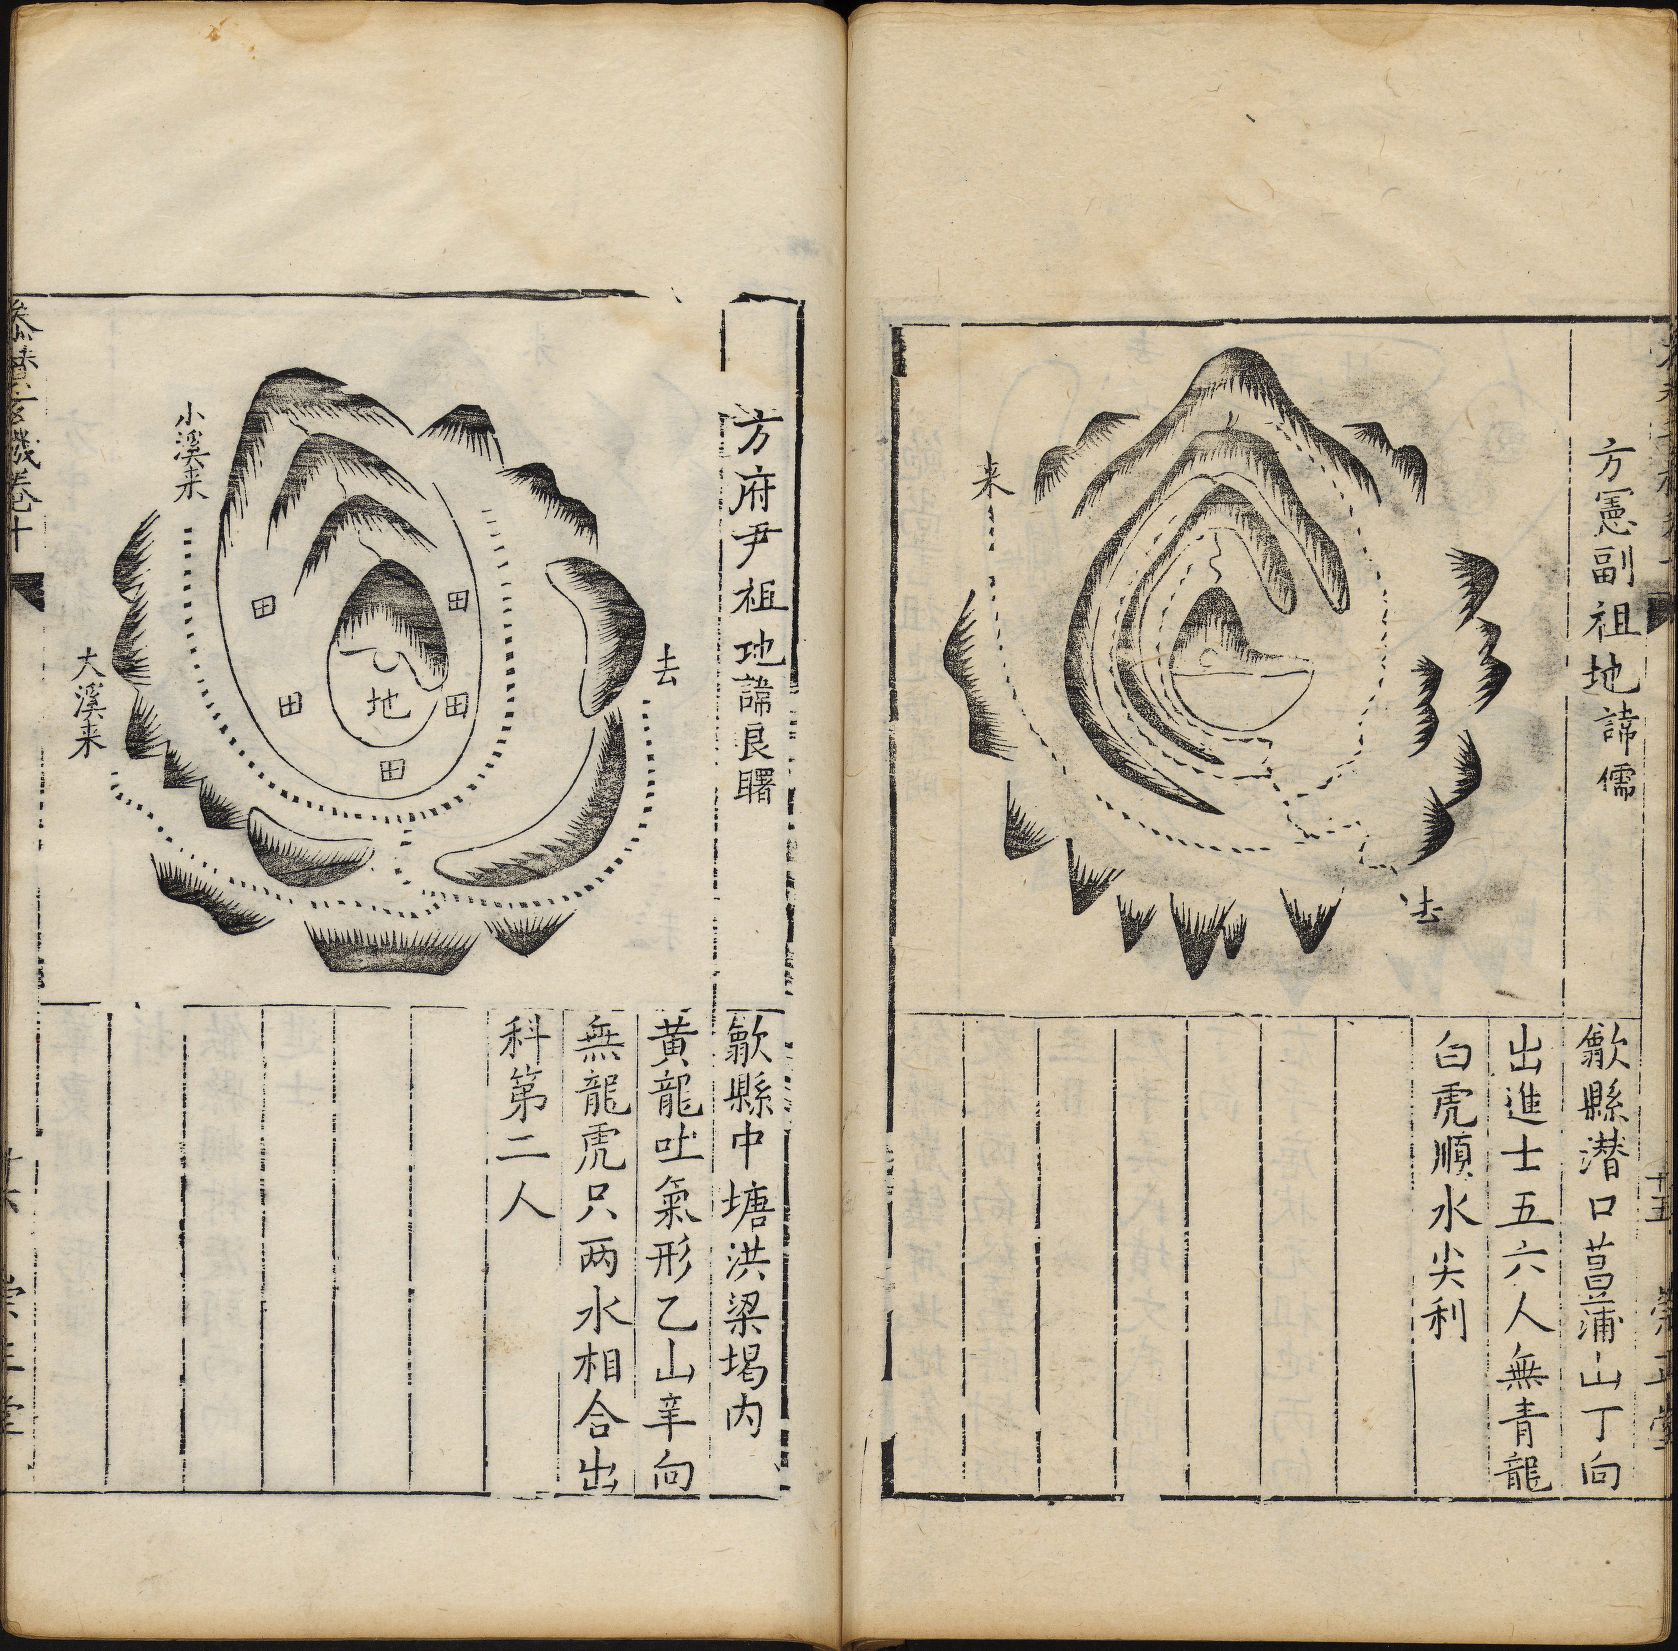 方憲副祖地諱儒
来
去
歙縣潜口菖蒲山丁向
出進士五六人無青龍
白虎順水尖利
十五
崇正堂
方府尹祖地諱良曙
小溪来
大溪来
去
田
田
田
田
田
地
歙縣中塘洪梁堨内
黄龍吐氣形乙山辛向
無龍虎只两水相合出
科第二人